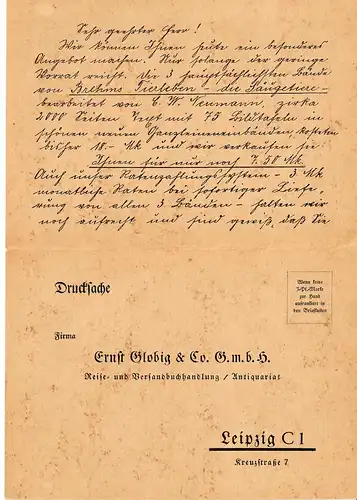 Sehr geehrter Herr!
Wir können Ihnen heute ein besonderes
Angebot machen. Nur solange der geringe
Vorrat reicht. Die 3 hauptsächlichsten Bände
von Brehms Tierleben – die Säugetiere –
bearbeitet von C. W. Neumann, zirka
2000 Seiten Text mit 75 Bildtafeln in
schönen neuen Ganzleinenbänden, kosteten
bisher 18.- Mk und wir verkaufen sie
Ihnen für nur noch 7.50 Mk.
Auch unser Ratenzahlungssystem – 3 Mk
monatliche Raten bei sofortiger Liefe-
rung von allen 3 Bänden – halten wir
noch aufrecht und sind gewiß, daß Sie
Wenn keine
3-Pf.-Marke
zur Hand
unfrankiert in
den Briefkasten
Drucksache
Firma
Ernst Globig & Co. G. m. b. H.
Reise- und Versandbuchhandlung / Antiquariat
Leipzig C 1
Kreuzstraße 7